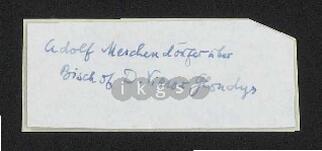 Adolf Meschendörfer über
Bischof D. Victor Glondys
ikgs